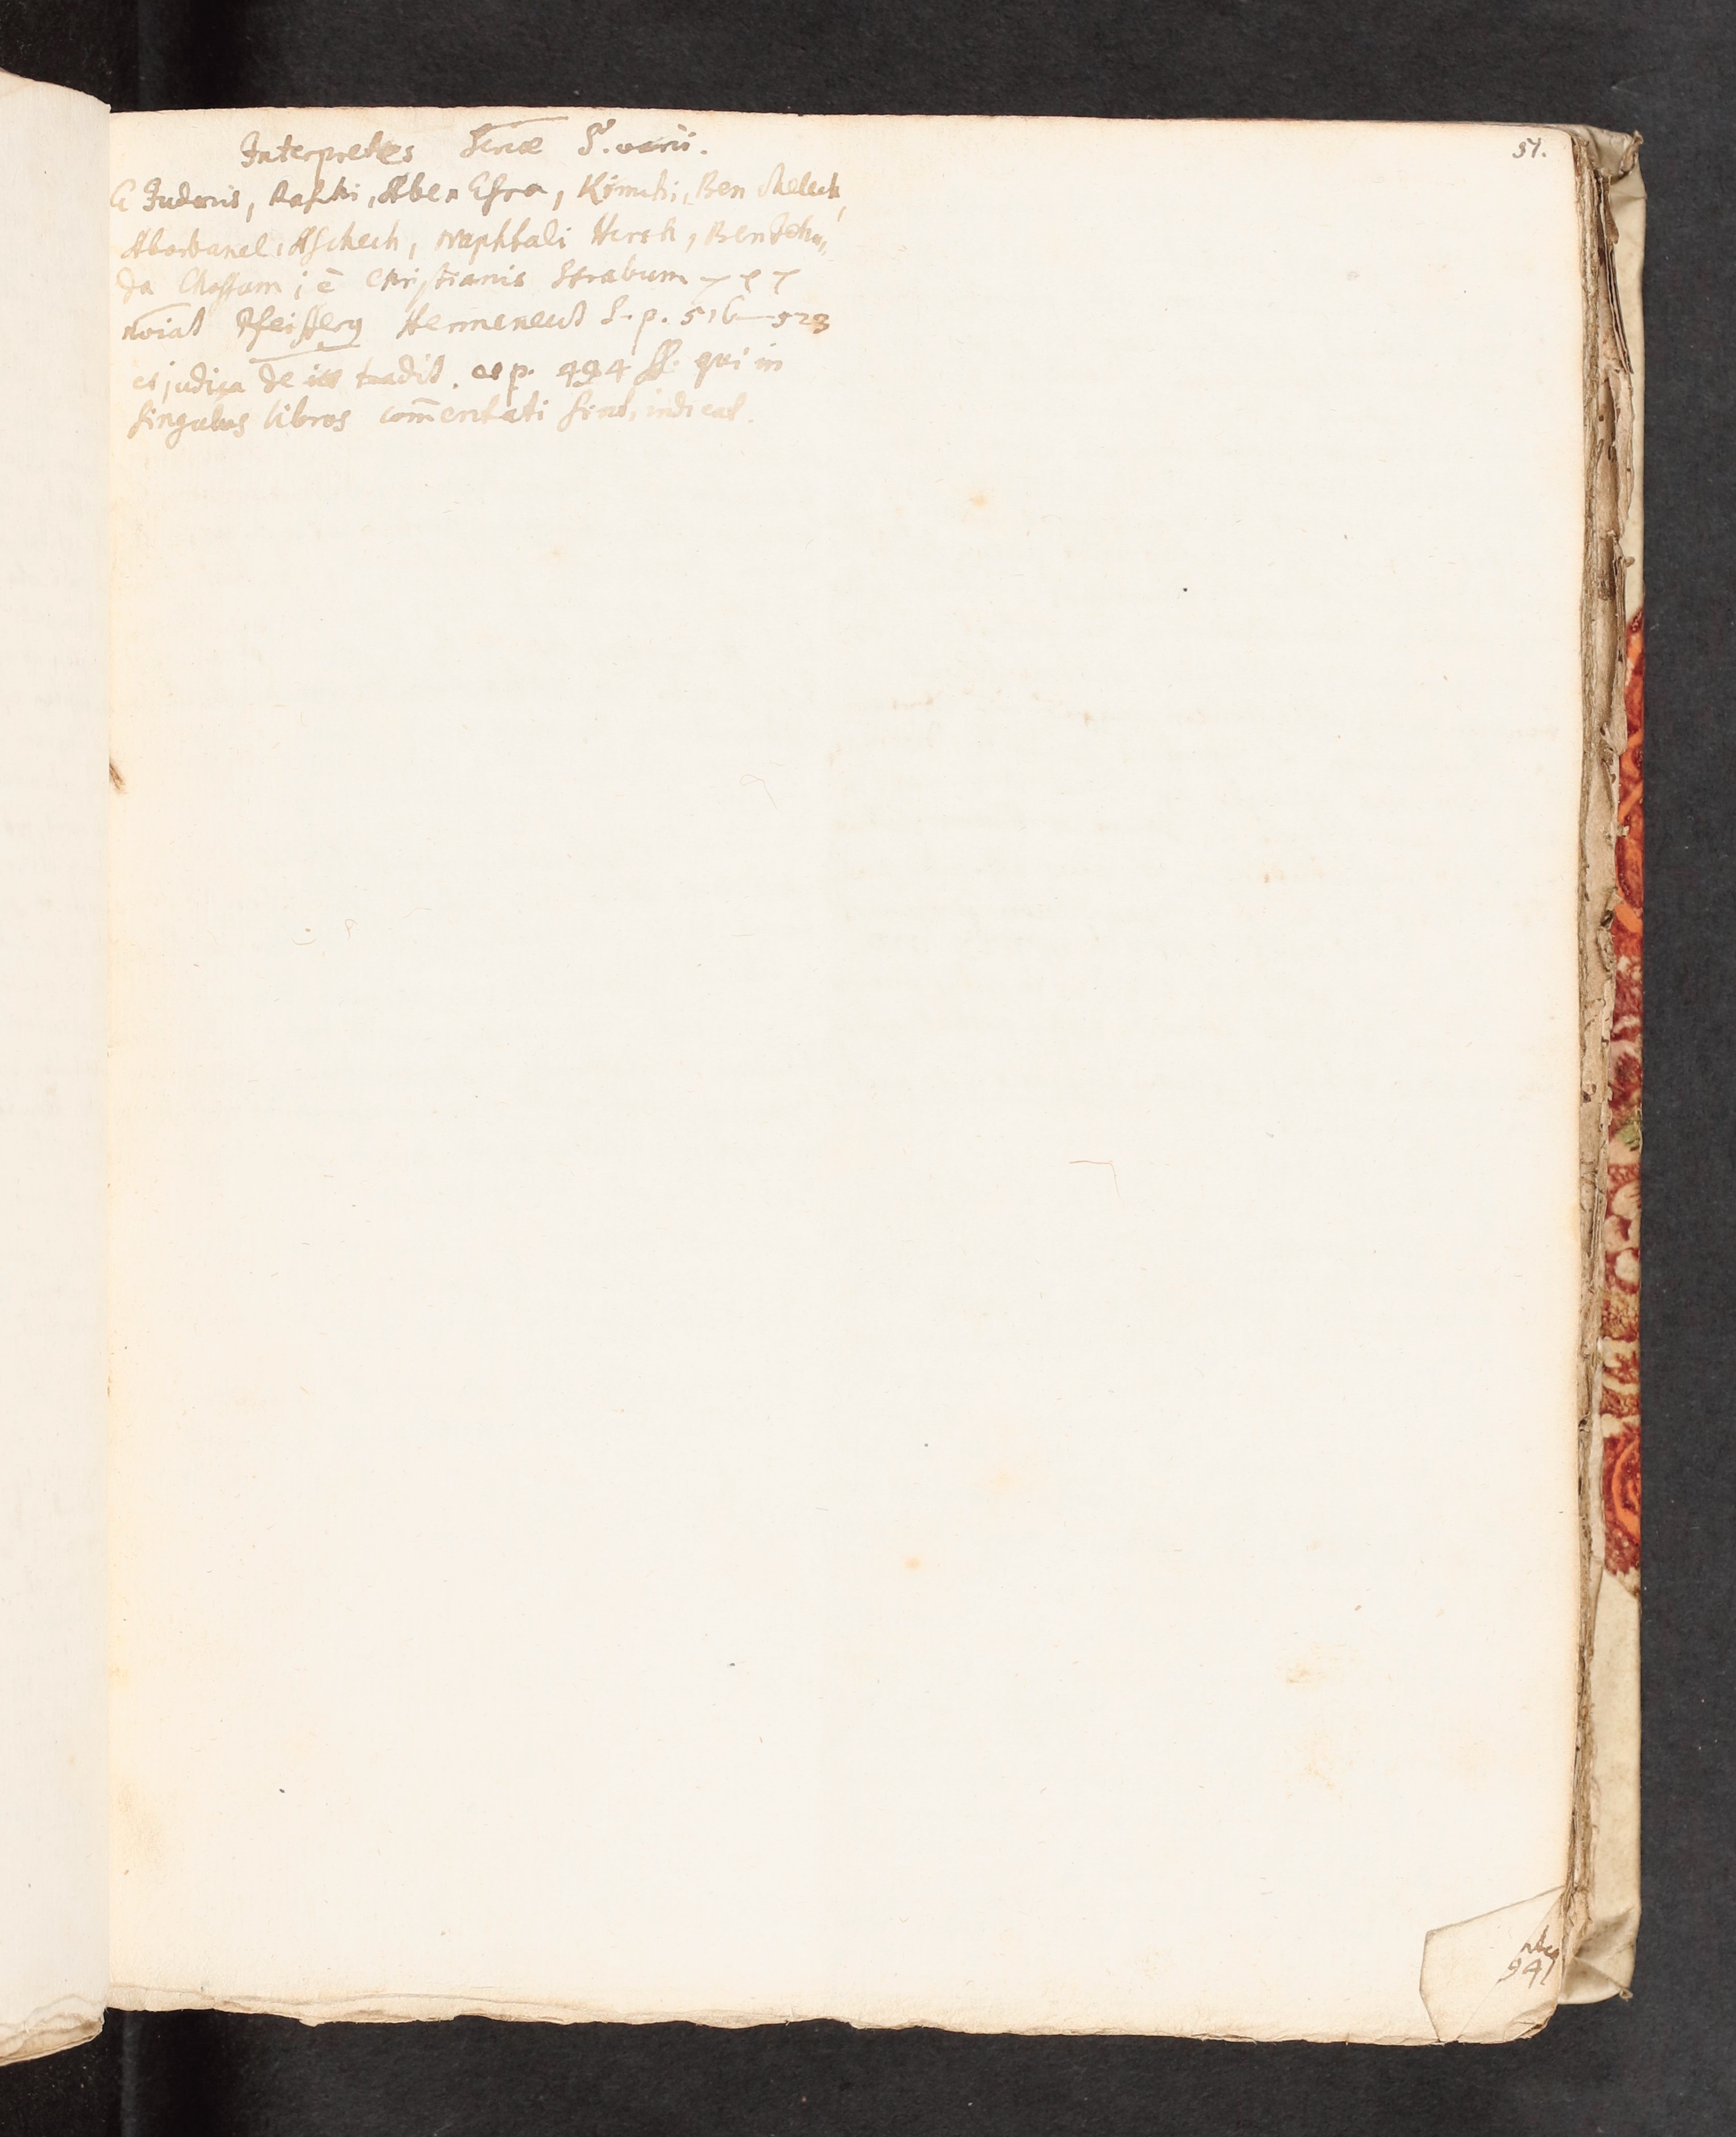 51.
Interpretes Scriae S. varii.
E Judaeis, Raschi, Aben Esra, Kimchi, Ben Melech,
Abarbanel, Alschech, Naphtali Hersh, Ben Jehu„
da Chassam; è Christianis Strabum
noiat Pfeiffery Hermeneut S. p. 516—523
et judica de tradit. et p. 494 ss. qui in
singulos libros com̄entati sint, indicat.
941